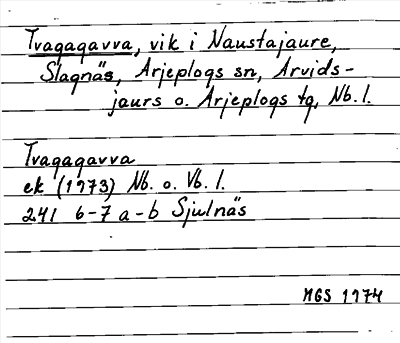 Tvagagavva, vik i Naustajaure,
Slagnäs, Arjeplogs sn, Arvids-
jaurs o. Arjeplogs tg, Nb. l.
Tvagagavva
ek (1973) Nb. o. Vb. l.
241 6-7 a-b Sjulnäs
MGS 1974